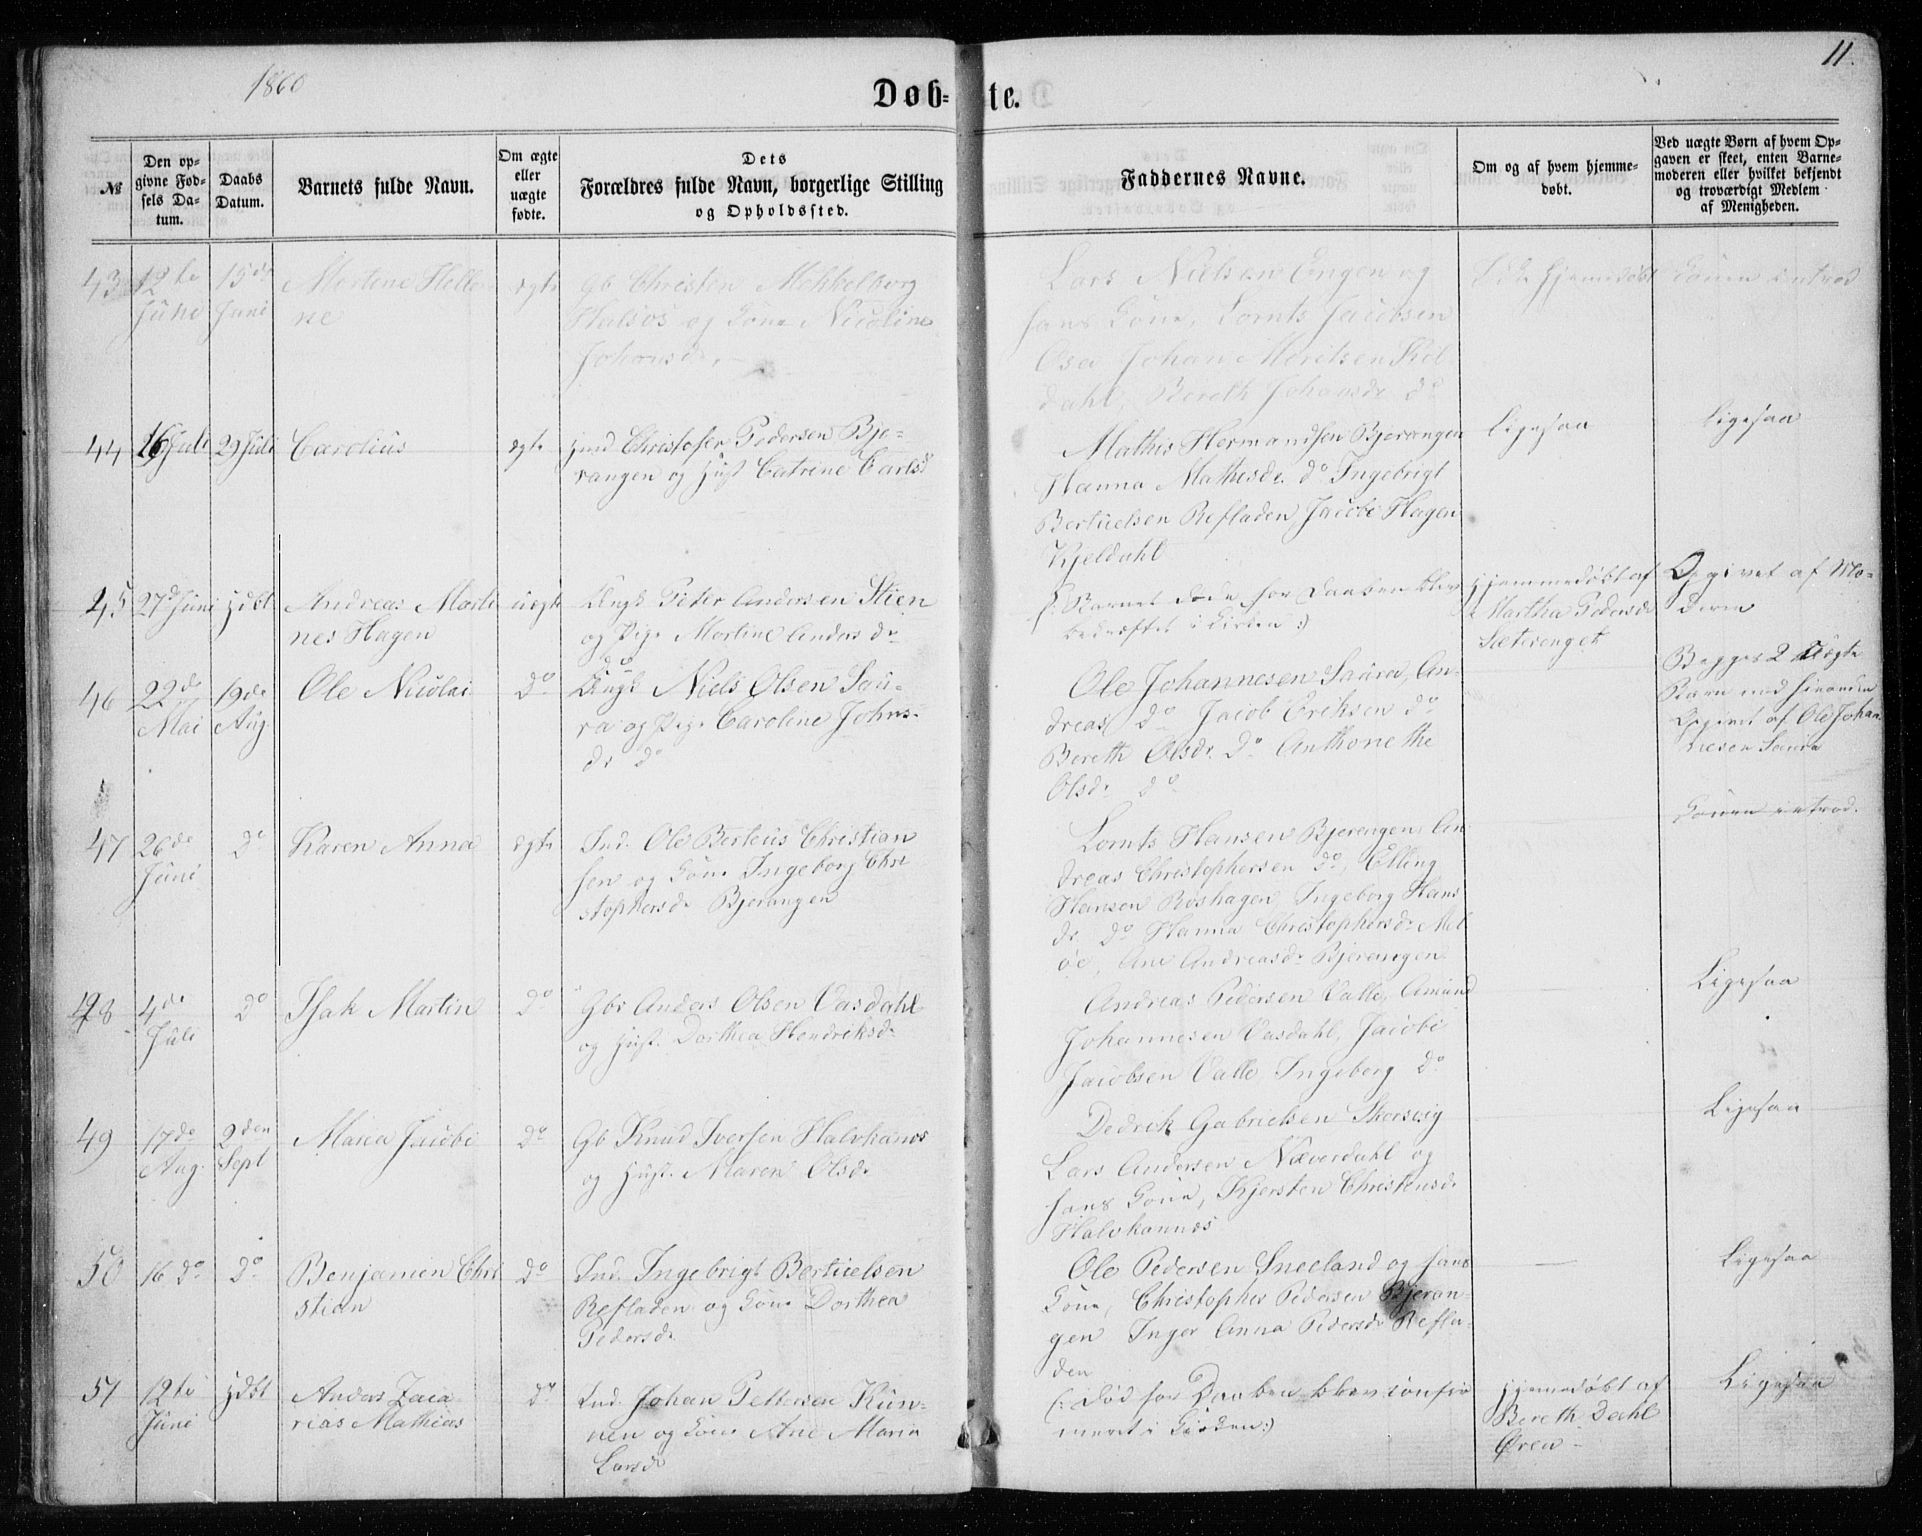 1860
Døb=
te.
11.
№
Den op-
givne Fød-
sels Da-
tum.
Daabs
Datum.
Barnets fulde Navn.
Om ægte
eller
uægte
fødte.
Dets
Forældres fulde Navn, borgerlige Stilling
og Opholdssted.
Faddernes Navne.
Om og af hvem hjemme-
døbt.
Ved uægte Børn af hvem Op-
gaven er skeet, enten Barne-
moderen eller hvilket bekjendt
og troværdigt Medlem
af Menigheden.
43 12te Juni
15de Juni
Mortine Helle
ne
ægte
Gb Christen Mekkelborg
Halsos og Kone Nicoline
Johansd.
Lars Nielsen Engen og
hans Kone, Lornts Jacobsen
Osa Johan Moritsen Kil
dahl, Bereth Johansdr do
Ikke hjemmedøbt
Konen introd
44 16 Juli
29 Juli
Carolius
ægte
Hmd Christofer Pedersen Bje-
rangen og Hust Catrine Carlsd
Mathis Hermandsen Bjerangen
Hanna Mathisdr. do Ingebrigt
Bertuelsen Refladen, Jacobi Hagen
Kjeldahl
Ligesaa
Ligesaa
45 27d Juni
Hdbt
Andreas Marti
nes Hagen
uægte
Ungk Peter Andersen Stien
og Pige Martine Andersdr
do
(: Barnet døde før Daaben blev
bekræftet i Kirken:)
Hjemmedøbt af
Martha Pedersdr
Sætivenget
Opgivet af Mo-
deren
46 22de Mai
19de Aug
Ole Nicolai
do
Ungk Niels Olsen Sau-
ra og Pige Caroline Johns-
dr do
Ole Johannesen Saura, An-
dreas do Jacob Eriksen do
Bereth Olsdr. do Anthonethe
Olsdr do
Begges 2 uægte
Barn med hinanden
Opgivet af Ole Johan
nesen Saura
47 26de Juni
do
Karen Anna
ægte
Ind. Ole Berteus Christian
sen og Kone Ingeborg Chri
stophersdr Bjerangen
Lornts Hansen Bjerangen, An
dreas Christophersen do, Elling
Hansen Roshagen, Ingeborg Hans
dr. do Hanna Christophersdr Mel
øe, Ane Andreasdr Bjerangen
Konen introd.
48 4de Juli
do
Isak Martin
do
Gbr Anders Olsen Vasdahl
og Hust. Dorthea Hendriksdr
Andreas Pedersen Valle, Amund
Johannesen Vasdahl, Jacobi
Jacobsen Valle, Ingeborg do
Ligesaa
49 17de Aug.
2den Sept
Maria Jacobi
do
Gb Knud Iversen Halvkanos
og Hust. Maren Olsdr
Dedrik Gabrielsen Skorsvig
Lars Andersen Næverdahl og
hans Kone, Kjersten Christensdr
Halvkannos
Ligesaa
50 16 do
do
Benjamin Chri
stian
do
Ind. Ingebrigt Bertuelsen
Refladen og Kone Dorthea
Pedersdr
Ole Pedersen Sneeland og hans
Kone, Christopher Pedersen Bjeran-
gen Inger Anna Pedersdr Refla-
den
Ligesaa
51 12te Juni
Hdbt
Anders Zaca
rias Mathias
do
Ind. Johan Pettersen Kun-
nen og Kone Ane Maria
Larsdr
(: død før Daaben blev confir
meret i Kirken:)
Hjemmedøbt af
Bereth Dahl
Øren
Ligesaa